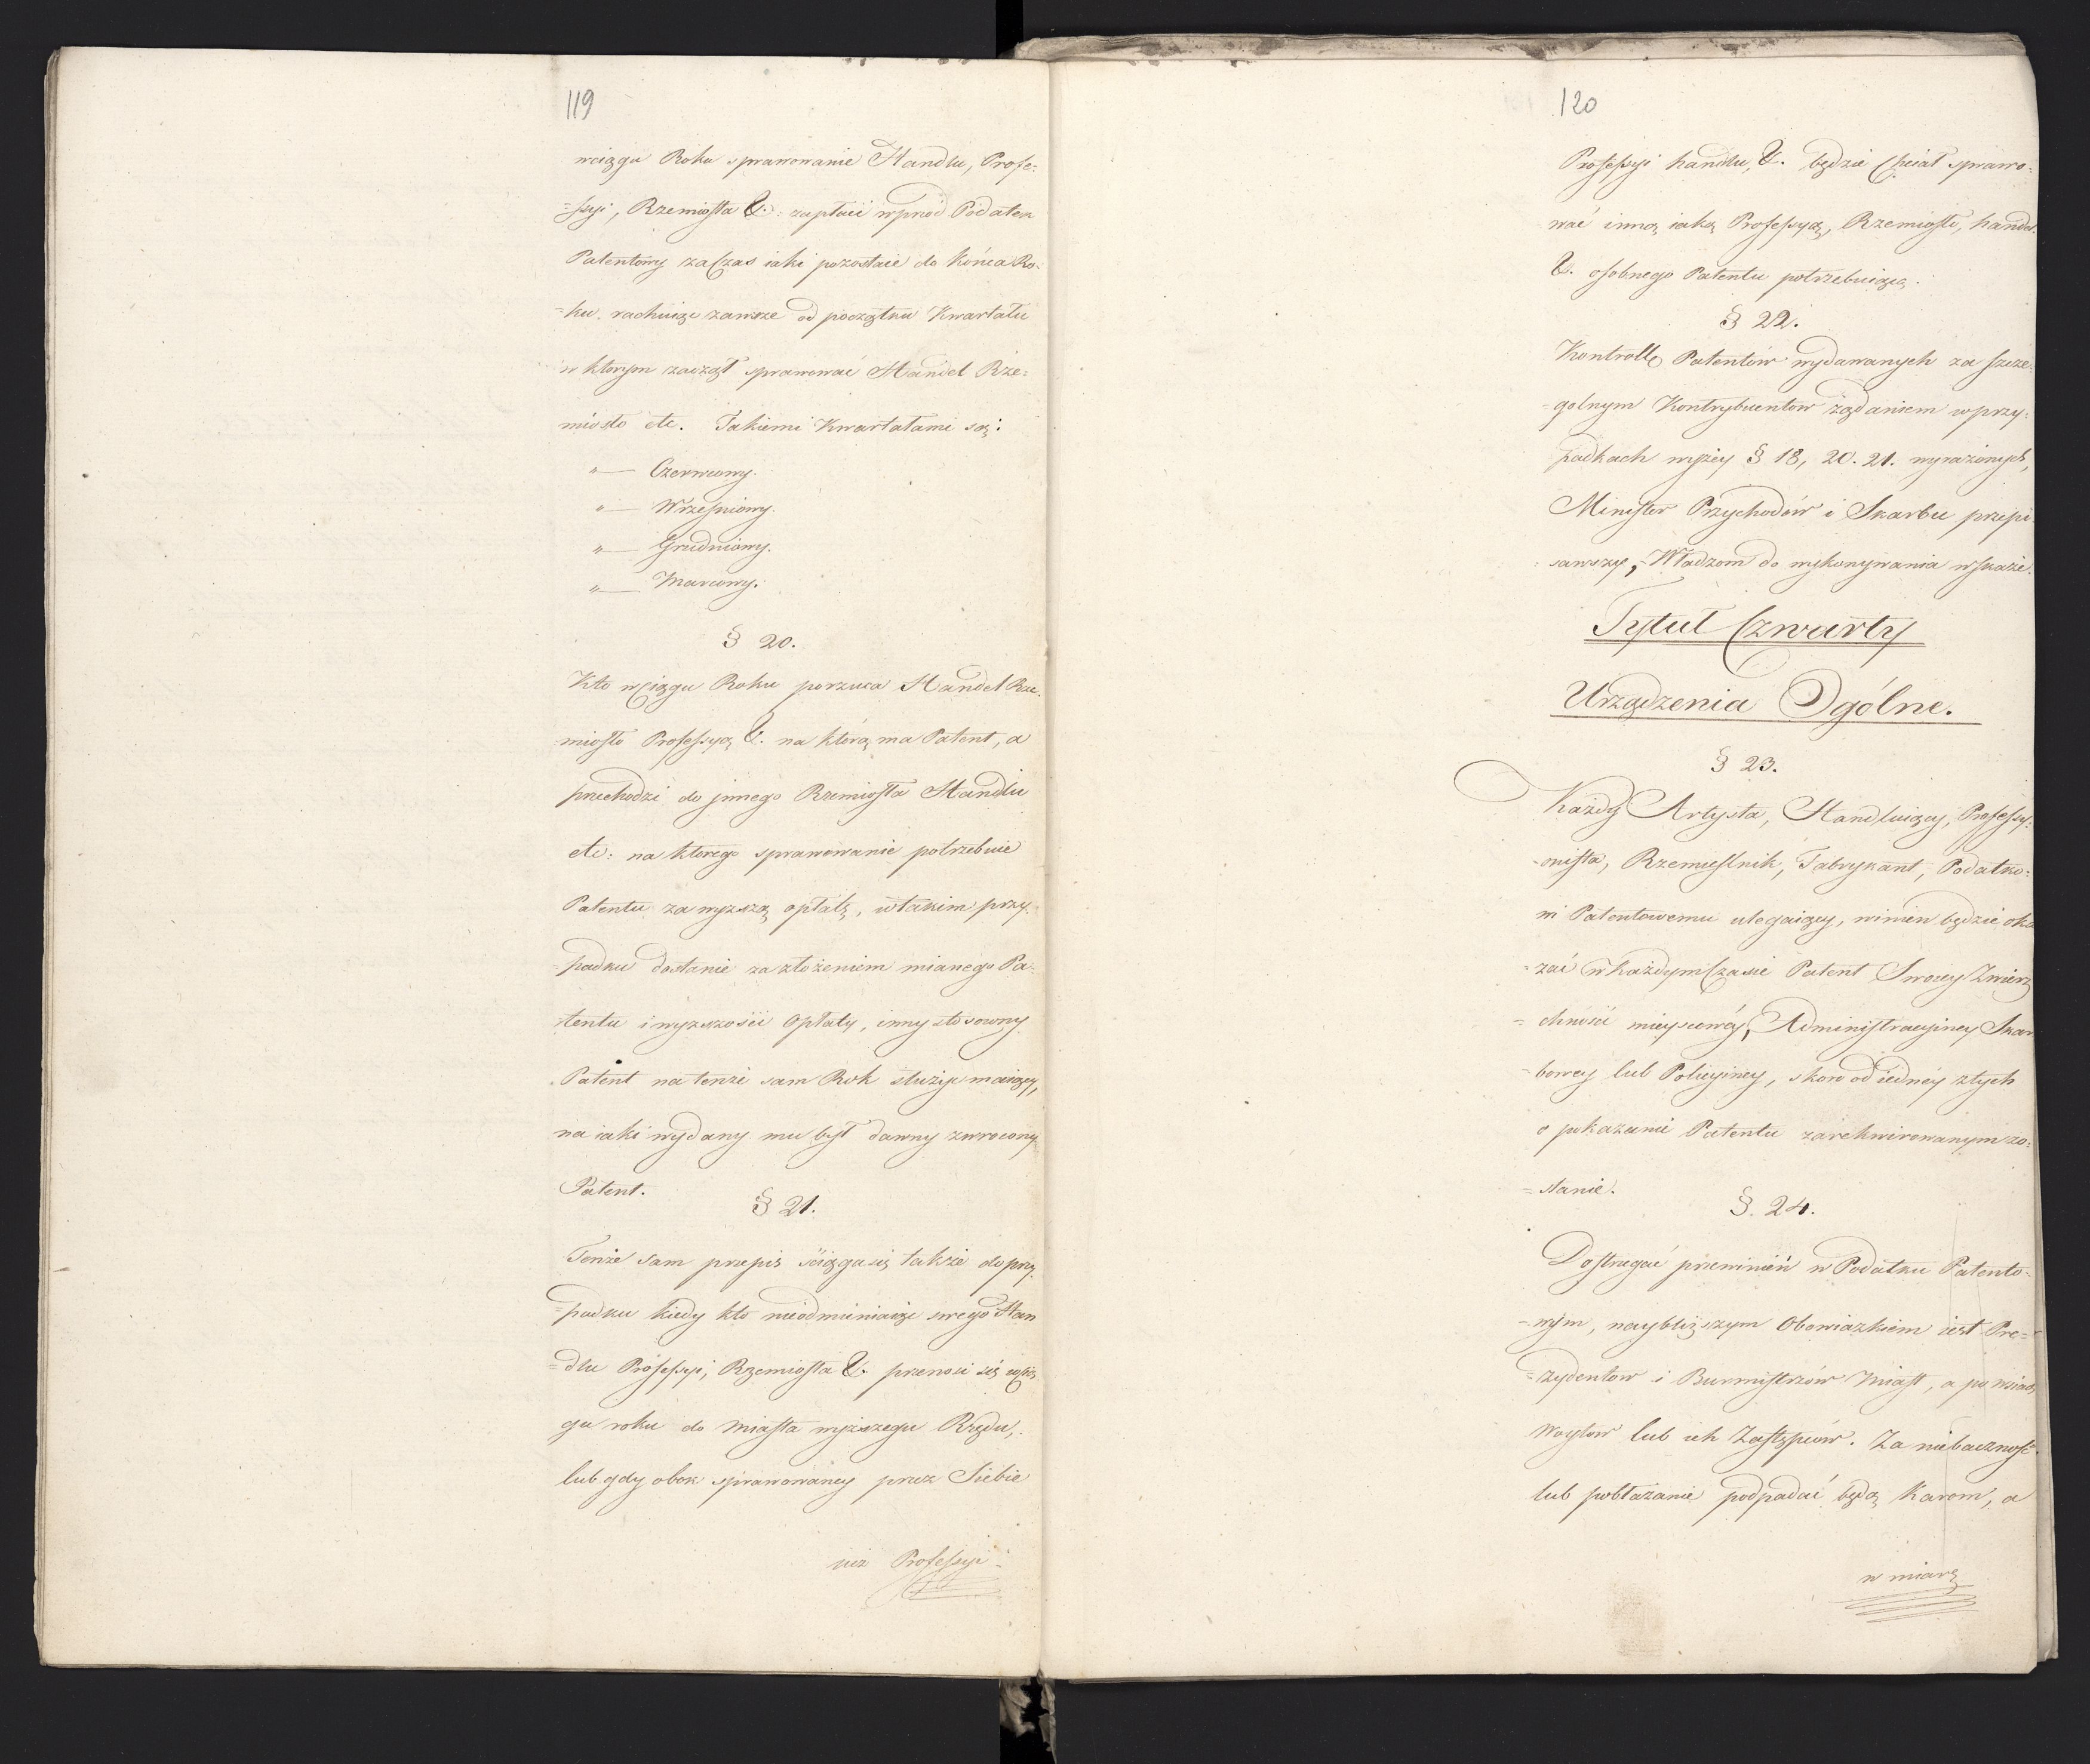 119
wciągu Roku sprawowanie Handlu, Profe:
=ssyi, Rzemiosła &: zapłaci wprzód Podatek
Patentowy za Czas iaki pozostaie do końca Ro-
=ku, rachuiąc zawsze od początku Kwartału
w ktorym zaczął sprawować Handel Rze:
miosło etc. Takiemi Kwartałami są:
"— Czerwcowy.
"— Wrzesniowy.
"— Grudniowy.
"— Marcowy.
§ 20.
Kto wciągu Roku porzuca Handel Rze.
miosło Professyą &. na którą ma Patent, a
przechodzi do jnnego Rzemiosła Handlu
etc: na ktorego sprawowanie potrzebuie
Patentu za wyższą opłatą, w takim przy-
=padku dostanie za złożeniem mianego Pa-
tentu i wyższości Opłaty, inny stosowny
Patent na tenże sam Rok służyć maiący,
na iaki wydany mu był dawny zwrocony
Patent.
§ 21.
Tenże sam przepis ściąga się także do przy
=padku kiedy kto nieodmieniaiąc swego Han
=dlu Professyi, Rzemiosła &. przenosi się wcią
gu roku do Miasta wyższego Rzędu,
lub gdy obok sprawowaney przez Siebie
iuż Professyi
120
Professyi handlu, &. będzie Chciał sprawo-
wać inną iaką Professyą, Rzemiosło, handel
&. osobnego Patentu potrzebuiącą.
§ 22.
Kontrollę Patentów wydawanych za szcze-
=golnym Kontrybuentow żądaniem w przy-
padkach wyżey § 18, 20. 21. wyrażonych,
Minister Przychodów i Skarbu przepi
sawszy, Władzom do wykonywania wskaże.
Tytuł Czwarty
Urządzenia Ogólne.
§ 23.
Każdy Artysta, Handluiący, Professy-
-onista, Rzemieślnik, Fabrykant, Podatko-
wi Patentowemu ulegaiący, winien będzie oka
=zać w każdym Czasie Patent Swoiey Zwierz
=chności mieyscowéy, Administracyiney Skar
=bowey lub Policyiney, skoro od iednéy z tych
o pokazanie Patentu zarekwirowanym zo-
=stanie.
§. 24.
Dostrzegać przewinień w Podatku Patento-
-wym, naybliższym Obowiązkiem iest Pre=
=zydentow i Burmistrzów Miast, a po wsiach
Woytow lub ich Zastępców. Za niebaczność
lub pobłażanie podpadać będą Karom, a
w miarę